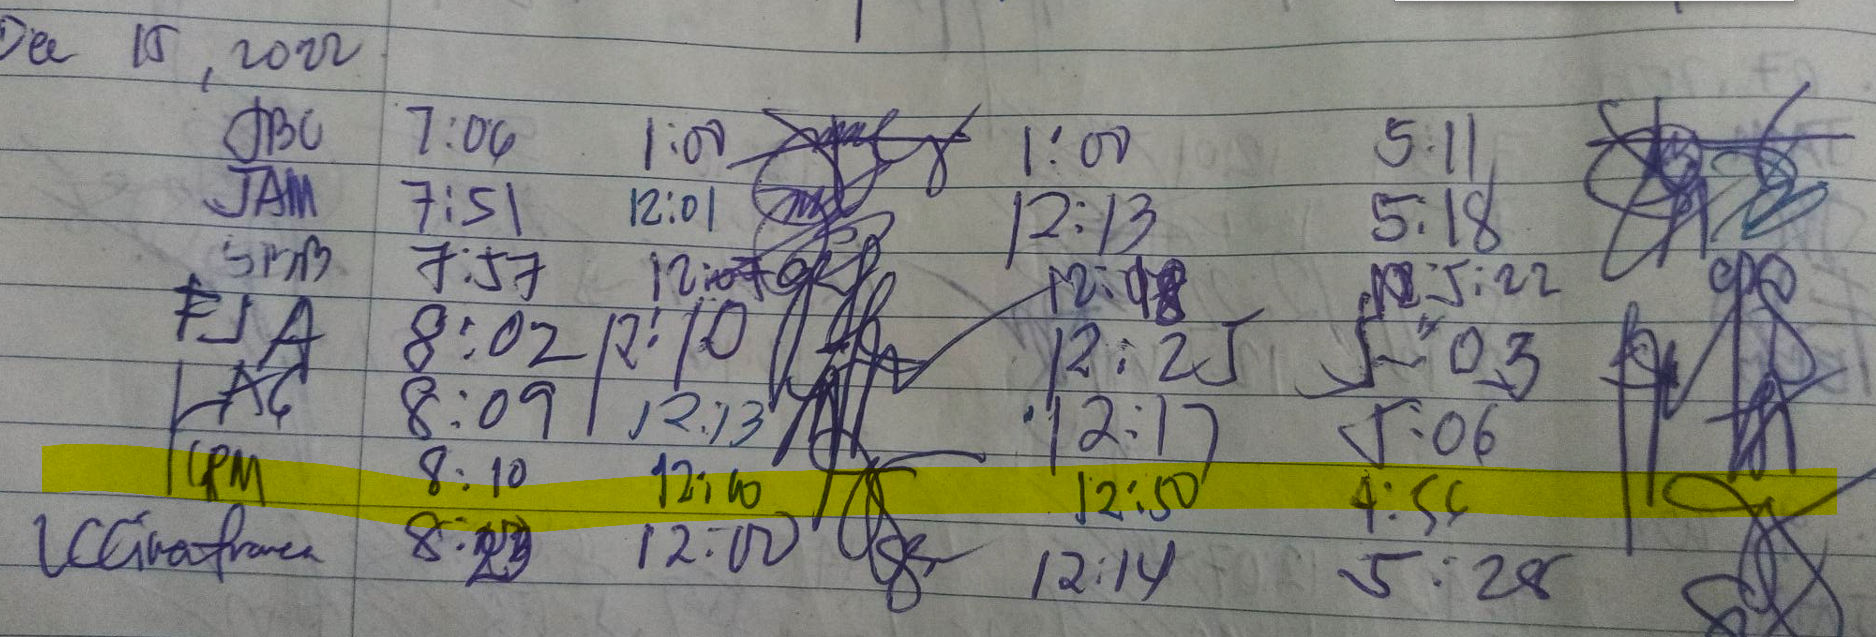 Dec 15, 2022
JBC 7:06 1:00 1:00 5:11
JAM 7:51 12:01 12:13 5:18
SBB 7:57 12:07 12:18 5:22
FJA 8:02 12:10 12:25 5:03
LAG 8:09 12:13 12:17 5:06
CPM 8:10 12:10 12:50 4:56
8:23 12:00 12:14 5:28